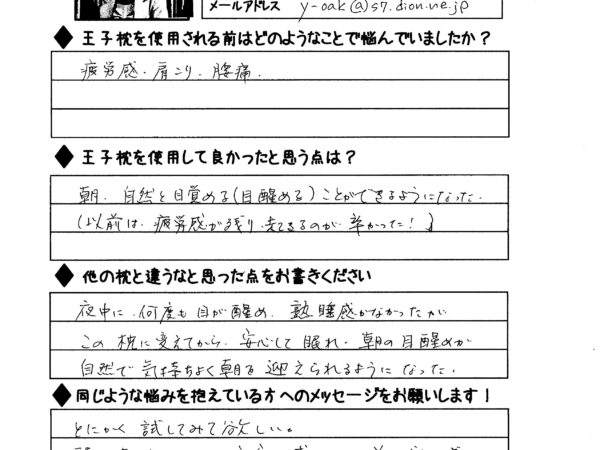 メールアドレス y-oak@s7.dion.ne.jp
◆ 王子枕を使用される前はどのようなことで悩んでいましたか？
疲労感、肩こり、腰痛、
◆ 王子枕を使用して良かったと思う点は？
朝、自然と目覚める(目醒める)ことができるようになった。
(以前は、疲労感が残り、起きるのが辛かった！)
◆ 他の枕と違うなと思った点をお書きください
夜中に、何度も目が醒め、熟睡感がなかったが
この枕に変えてから、安心して眠れ、朝の目醒めが
自然で気持ちよく朝を迎えられるようになった。
◆ 同じような悩みを抱えている方へのメッセージをお願いします！
とにかく試してみて欲しい。